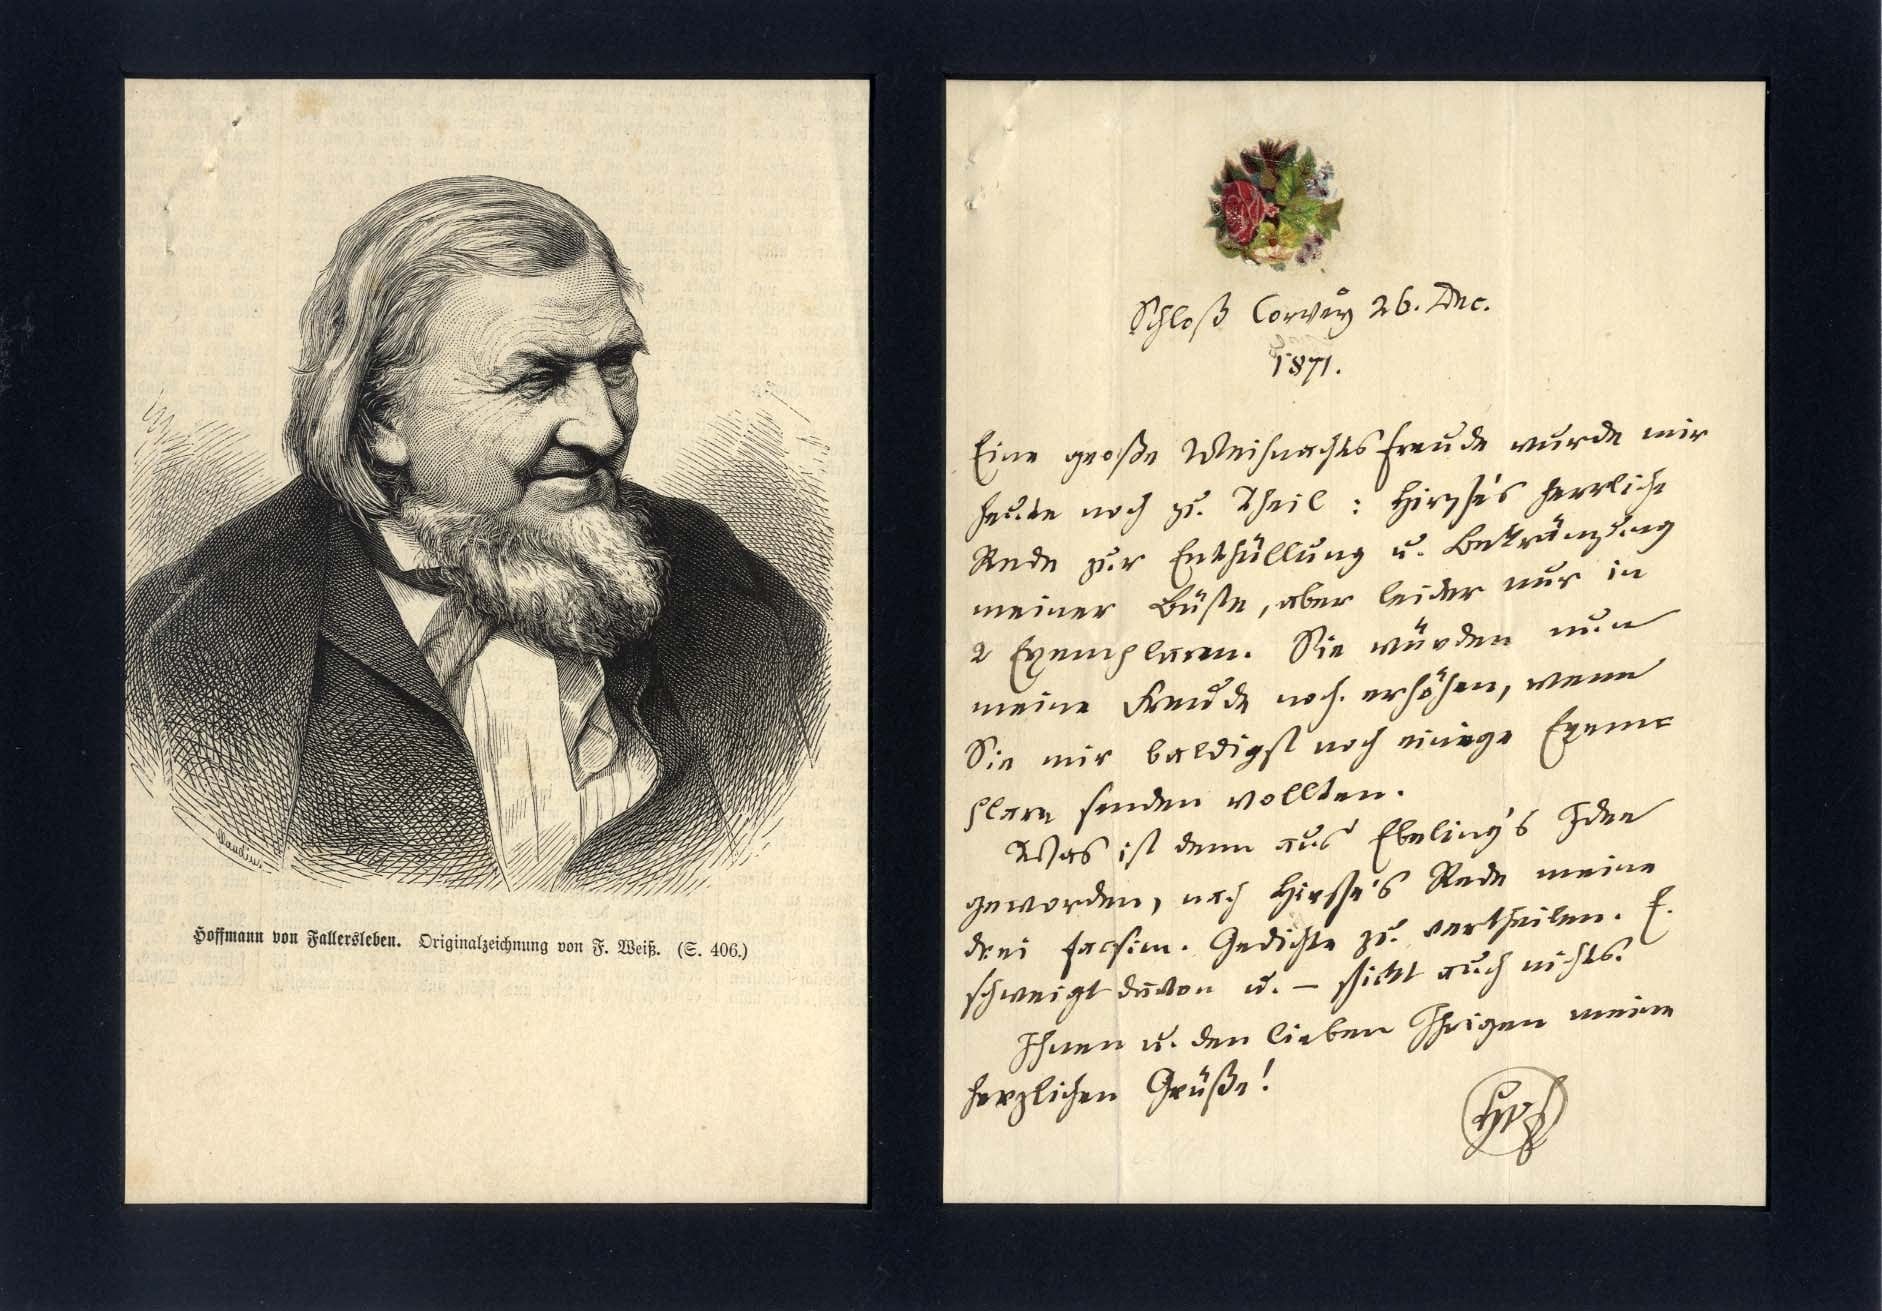 Claudin.
Hoffmann von Fallersleben. Originalzeichnung von F. Weiß. (S. 406.)
Schloß Corvey 26. Dec.
1871.
Eine große Weihnachtsfreude wurde mir
heute noch zu Theil : Hirsche's herrliche
Rede zur Enthüllung u. Bekränzung
meiner Büste, aber leider nur in
2 Exemplaren. Sie würden nun
meine Freude noch erhöhen, wenn
Sie mir baldigst noch einige Exem-
plare senden wollten.
Was ist denn aus Ebeling's Idee
geworden, nach Hirsche's Rede meine
drei facsim. Gedichte zu vertheilen. E.
schweigt davon u. – schickt auch nichts.
Ihnen u. den lieben Ihrigen meine
herzlichen Grüße!
HvF